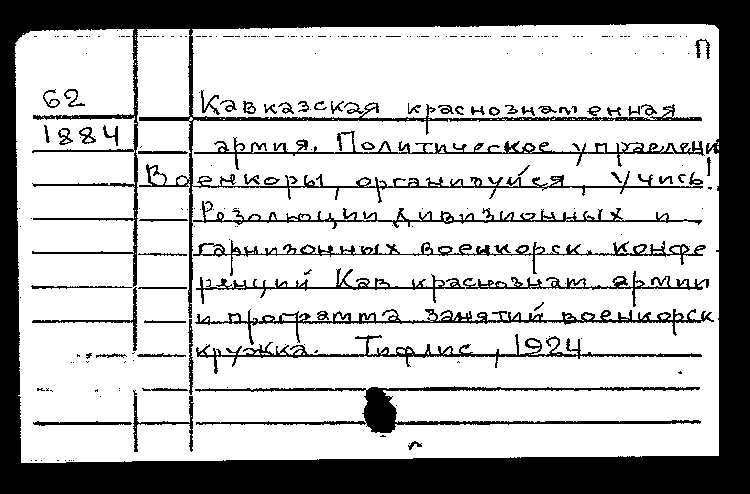 П
62
1884
Кавказская краснознаменная
армия. Политическое управлени
Военкоры, организуйся, учись!
Резолюции дивизионных и
гарнизонных военкорск. конфе-
ренций Кав. краснознам. армии
и программа занятий военкорск.
кружка. Тифлис, 1924.